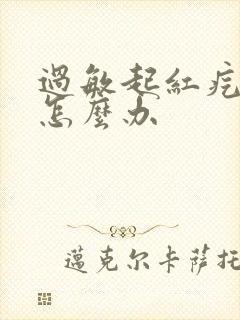 過敏起紅疙
怎麼办
邁克尔卡薩托